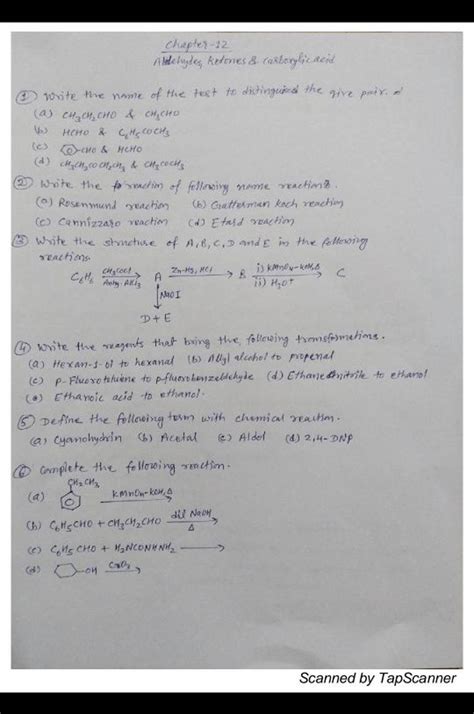 Chapter-12
Aldehydes, Ketones & carboxylic acid
① Write the name of the test to distinguised the give pair.
(a) CH₃CH₂CHO & CH₃CHO
(b) HCHO & C₆H₅COCH₃
(c) -CHO & HCHO
(d) CH₃CH₂COCH₂CH₃ & CH₃COCH₃
② Write the reaction of following name reactions.
(a) Rosenmund reaction (b) Gatterman koch reaction
(c) Cannizzaro reaction (d) Etard reaction
③ Write the structure of A, B, C, D and E in the following
reactions
C₆H₆ CH₃COCl Anhy. AlCl₃ A Zn-Hg, HCl B i) KMnO₄-KOH, Δ ii) H₃O⁺ C
NaOI
D + E
④ Write the reagents that bring the following transformations.
(a) Hexan-1-ol to hexanal (b) Allyl alcohol to propenal
(c) p-Fluorotoluene to p-fluorobenzaldehyde (d) Ethanenitrile to ethanol
(e) Ethanoic acid to ethanol.
⑤ Define the following term with chemical reaction.
(a) Cyanohydrin (b) Acetal (c) Aldol (d) 2,4-DNP
⑥ Complete the following reaction.
CH₂CH₃
(a) KMnO₄-KOH, Δ
(b) C₆H₅CHO + CH₃CH₂CHO dil NaOH Δ
(c) C₆H₅CHO + H₂NCONHNH₂
(d) -OH CrO₃
Scanned by TapScanner